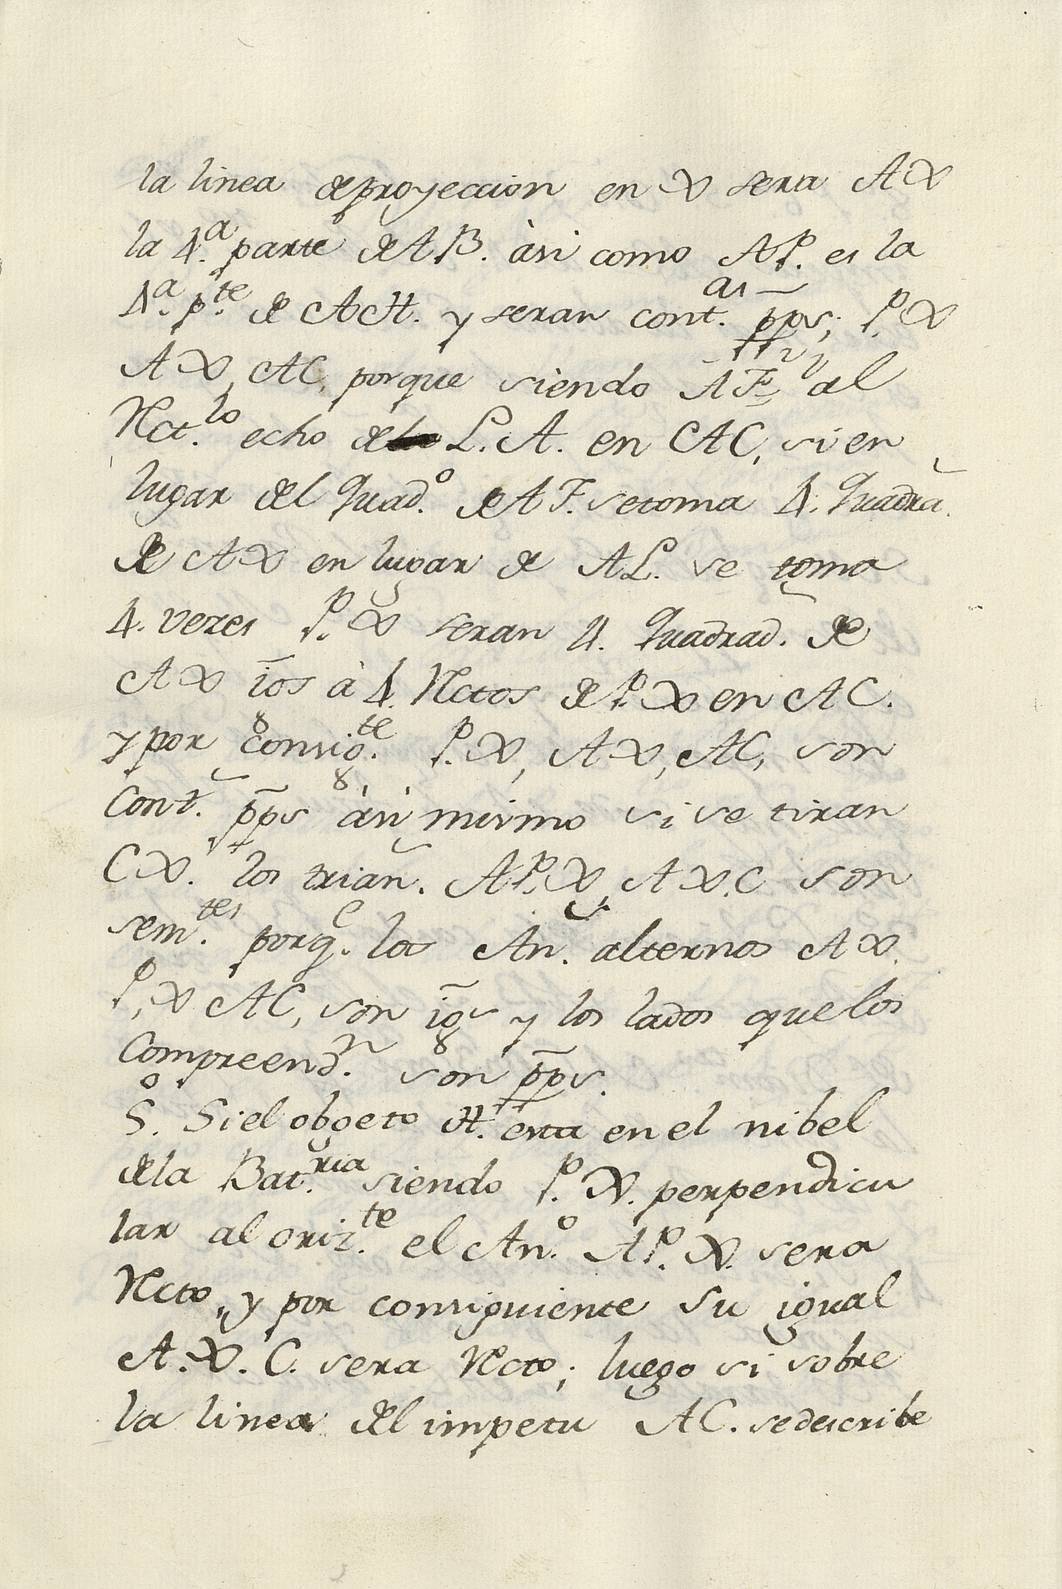 la linea de proyeccion en X sera AX
la 4.ª parte de AB. àsi como AP. es la
4.ª p.te de AH. y seran cont.as pp̄s; P.X
AX, AC, porque siendo AF, al
Rct.lo echo de L.A. en CAC, si en
lugar del Quad.o de AF. se toma 4. Quadra.
de AX en lugar de AL. se toma
4. vezes P.X seran 4. Quadrad. de
AX īos à 4. Rctos de P.X en AC.
y por consig.te P.X, AX, AC, son
Cont. pp̄s àsi mismo si se tiran
CX. los trian. AP.X, AX.C son
sem.tes porq.e los An. alternos AX.
P, X AC, son īgs y los lados que los
Compreend.n son pp̄s.
5.o Si el obgeto H. esta en el nibel
de la Bat.ria siendo P.X. perpendicu
lar al oriz.te el An.o AP.X. sera
Rcto, y por consiguiente su igual
A.X.C. sera Rcto; luego si sobre
la linea del impetu AC. se describe